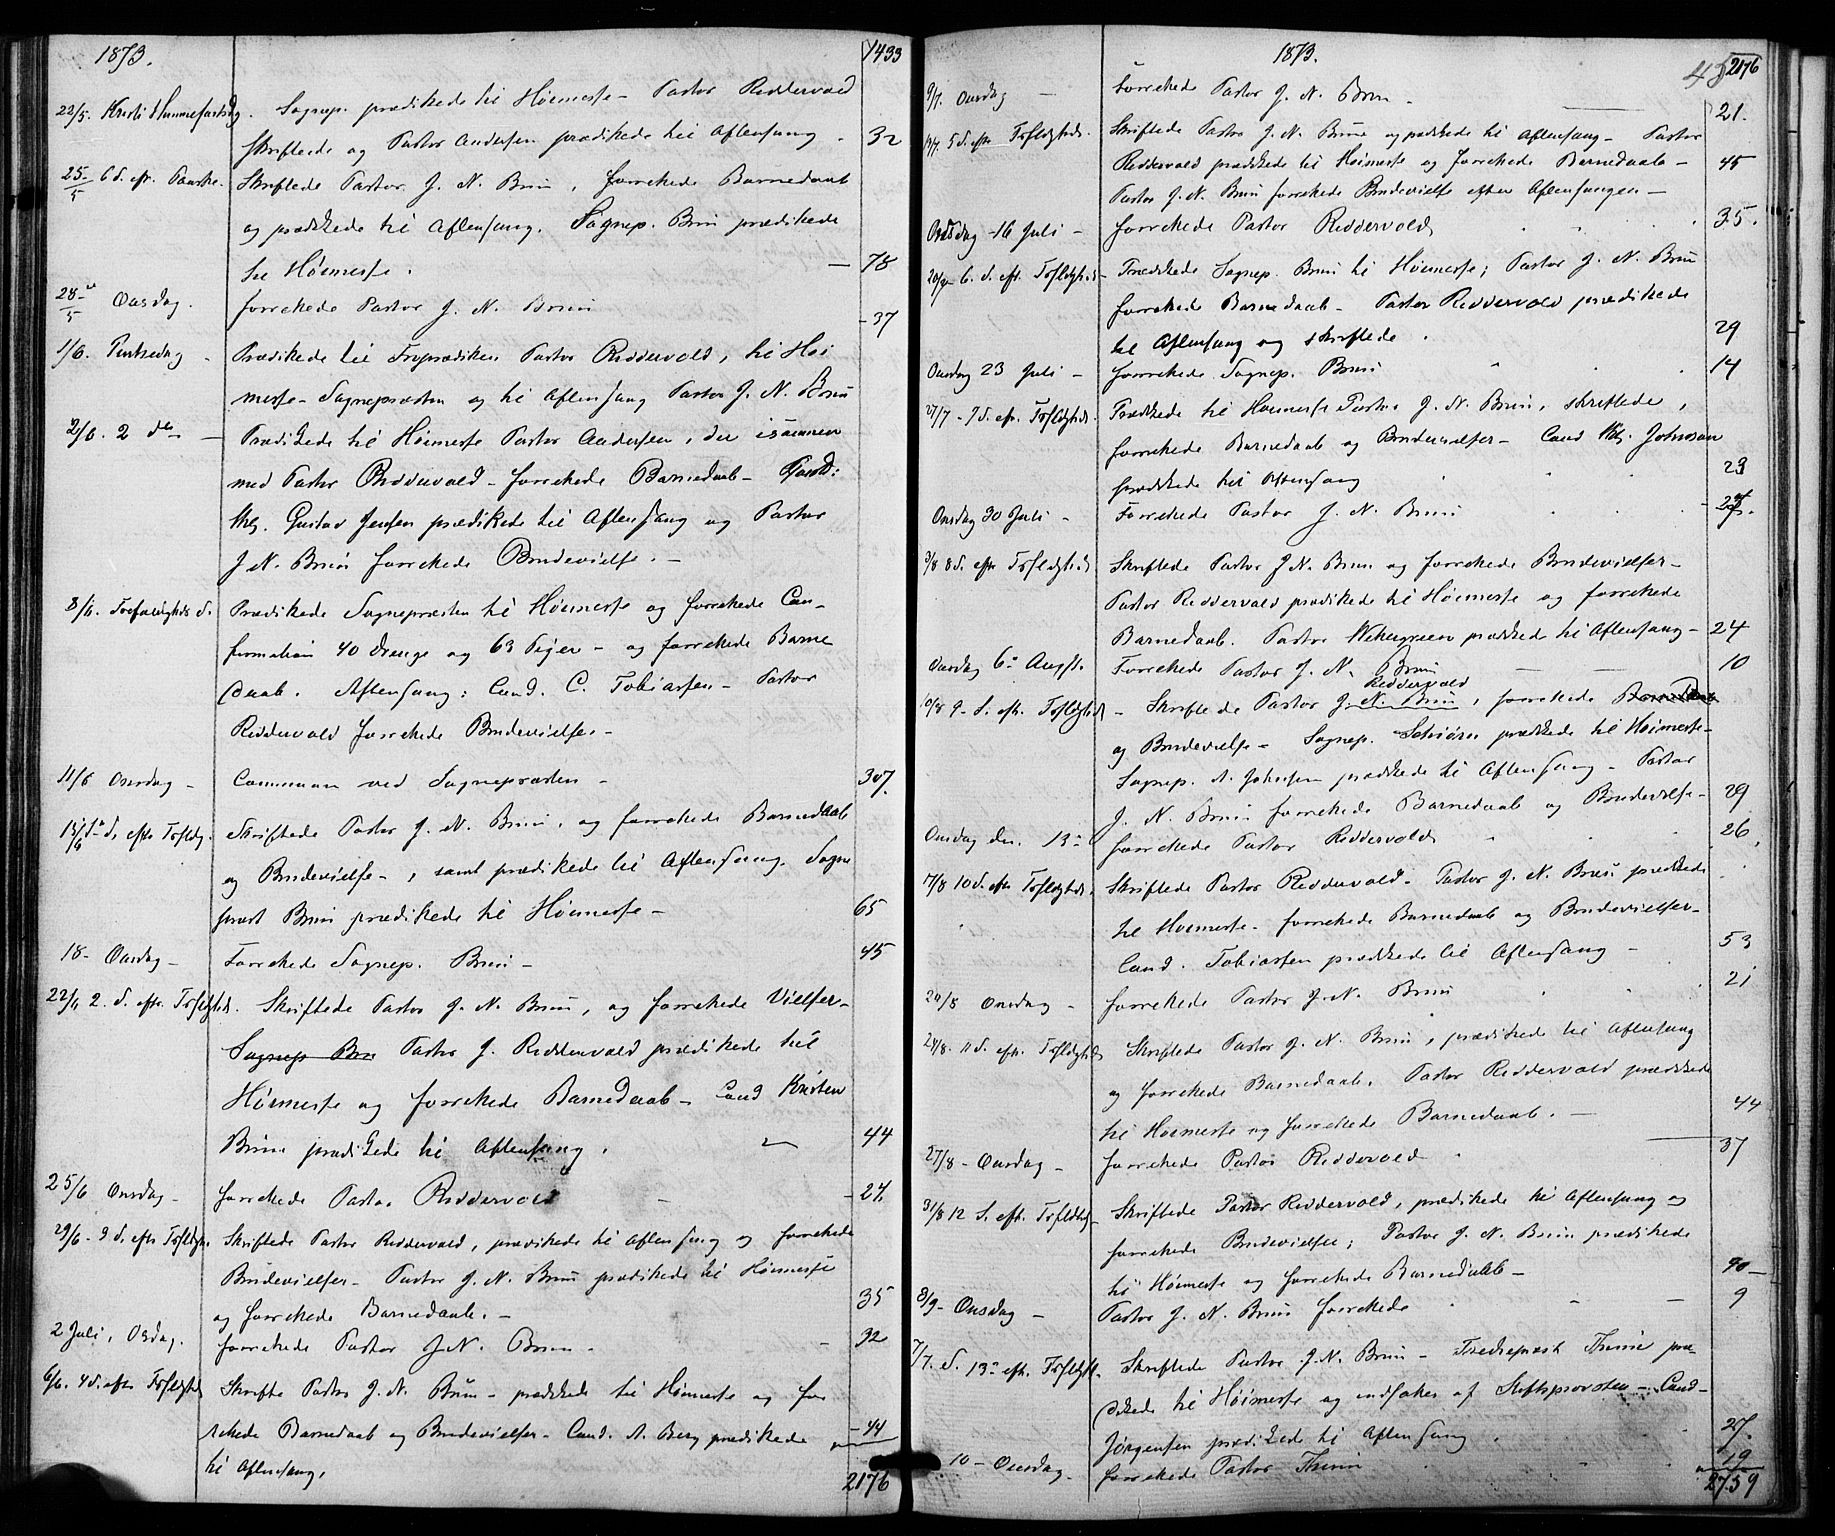 1873.
1433
22/5. Kristi Himmelfartsdg. Sognep. prædikede til Høimesse – Pastor Riddervold
skriftede og Pastor Andersen prædikede til Aftensang. 32
25/5 6 S. eft. Paaske. Skriftede Pastor J. N. Brun, forrettede Barnedaab
og prædikede til Aftensang. Sognep. Brun prædikede
til Høimesse. – 78
28/5 Onsdag. forrettede Pastor J. N. Brun – 37
1/6. Pintsedag – Prædikede til Froprædiken Pastor Riddervold, til Høi
messe – Sognepræsten og til Aftensang Pastor J. N. Brun
2/6. 2 den – Prædikede til Høimesse Pastor Andersen, der isammen
med Pastor Riddervold – forrettede Barnedaab – Cand:
theol. Gustav Jensen prædikede til Aftensang og Pastor
J. N. Brun forrettede Brudevielse. –
8/6. Trefoldigheds S. Prædikede Sognepræsten til Høimesse og forrettede Con-
firmation 40 Drenge og 63 Piger – og forrettede Barne
daab. Aftensang: Cand. C. Tobiassen – Pastor
Riddervold forrettede Brudevielse –
11/6 Onsdag – Communion ved Sognepræsten – 307.
15/6 1ste S. efter Trefoldg. Skriftede Pastor J. N. Brun, og forrettede Barnedaab
og Brudevielse –, samt prædikede til Aftensang. Sogne
præst Brun prædikede til Høimesse – 65
18 – Onsdag – Forrettede Sognep. Brun – 45
22/6 2. S. eftr. Trefoldgheds. Skriftede Pastor J. N. Brun, og forrettede Vielser –
Sognep Bru Pastor J. Riddervold prædikede til
Høimesse og forrettede Barnedaab – Cand Kristen
Brun prædikede til Aftensang. 44
25/6 Onsdag – forrettede Pastor Riddervold – 24.
29/6 – 3 S. eftr Trefoldgh. Skriftede Pastor Riddervold, prædikede til Aftensang og forrettede
Brudevielser – Pastor J. N. Brun prædikede til Høimesse
og forrettede Barnedaab. – 35
2 Juli, Osdag. forrettede Pastor J. N. Brun – 32
6/6. 4 S. eftr Trefoldgheds Skrifte Pastor J. N. Brun – prædikede til Høimesse og for
rettede Barnedaab og Brudevielser – Cand. A. Berg prædikede – 44
til Aftensang.
2176
1873.
43 2176
9/7. Onsdag – Forrettede Pastor J. N. Brun – 21.
13/7. 5 S. efter Trefoldgheds. Skriftede Pastor J. N. Brun og prædikede til Aftensang – Pastor
Riddervold prædikede til Høimesse og forrettede Barnedaab – 45
Pastor J. N. Brun forrettede Brudevielse efter Aftensangen –
Onsdag 16 Juli – forrettede Pastor Riddervold 35.
20/7 6. S. eft. Trefoldgheds – Prædikede Sognep. Brun til Høimesse; Pastor J. N. Brun
forrettede Barnedaab – Pastor Riddervold prædikede
til Aftensang og skriftede. 29
Onsdag 23 Juli – forrettede Sognep. Brun 14
27/7 – 7 S. eft. Trefoldgheds. Prædikede til Høimesse Pastor J. N. Brun, skriftede,
forrettede Barnedaab og Brudevielser – Cand theol. Johnson
prædikede til Aftensang 23
Onsdag 30 Juli – Forrettede Pastor J. N. Brun
3/8 8 S. eftr Trefoldgheds Skriftede Pastor J N. Brun og forrettede Brudevielser –
Pastor Riddervold prædikede til Høimesse og forrettede
Barnedaab. Pastor Wetergreen prædikede til Aftensang – 24
Onsdag 6te August. Forrettede Pastor J. N. Brun 10
Riddervold
10/8 9 – S. eft. Trefoldgheds – Skriftede Pastor J. N. Brun, forrettede Barnedaab
og Brudevielse – Sognep. Schiørn prædikede til Høimesse –
Sognep. A. Johnsen prædikede til Aftensang – Pastor
J. N. Brun forrettede Barnedaab og Brudevielse – 29
Onsdag den 13de forrettede Pastor Riddervold 26
17/8 10 S. eftr Trefoldgheds. Skriftede Pastor Riddervold – Pastor J. N. Brun prædikede
til Høimesse – forrettede Barnedaab og Brudevielser –
Cand. Tobiassen prædikede til Aftensang – 53
20/8 Onsdag – forrettede Pastor J. N. Brun 21
24/8. 11 S. eftr. Trefoldgheds Skriftede Pastor J. N. Brun, prædikede til Aftensang
og forrettede Barnedaab. Pastor Riddervold prædikede
til Høimesse og forrettede Barnedaab. – 44
27/8 – Onsdag – forrettede Pastor Riddervold 37
31/8 12 S. eft. Trefoldhed – Skriftede Pastor Riddervold, prædikede til Aftensang og
forrettede Brudevielse; Pastor J. N. Brun prædikede
til Høimesse og forrettede Barnedaab – 40 –
3/9 – Onsdag – Pastor J. N. Brun forrettede 9
7/7. S. 13de eft. Trefoldgh. Skriftede Pastor J. N. Brun – Trediepræst Thime præ-
dikede til Høimesse og indsattes af Stiftsprovsten – Cand –
Jørgensen prædikede til Aftensang 27.
10 – Onsdag. forrettede Pastor Thime 19
2759